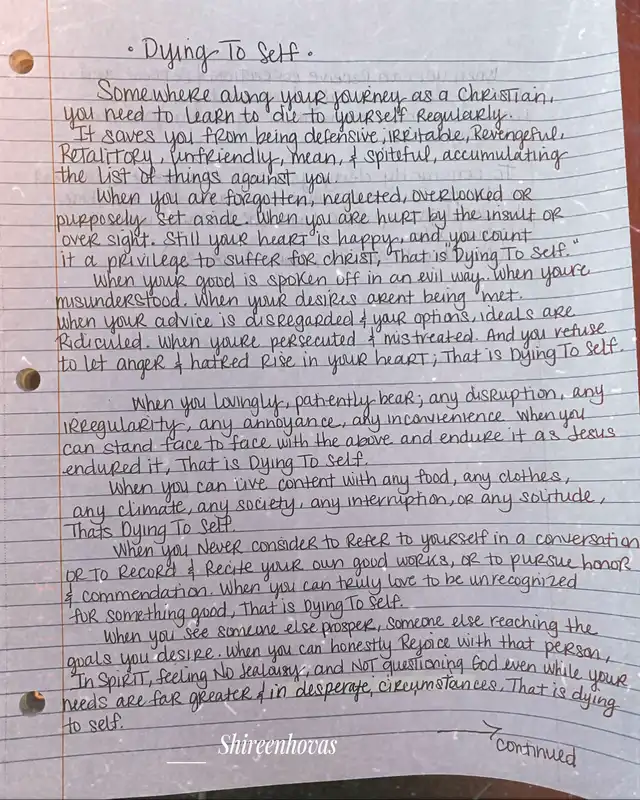 • Dying To Self •
Somewhere along your journey as a Christian,
you need to learn to die to yourself regularly.
It saves you from being defensive, irritable, Revengeful,
Retalitory, unfriendly, mean, & spiteful, accumulating
the list of things against you.
When you are forgotten, neglected, overlooked or
purposely set aside. When you are hurt by the insult or
over sight. Still your heart is happy, and you count
it a privilege to suffer for Christ, That is "Dying To Self."
When your good is spoken off in an evil way. When youre
misunderstood. When your desires arent being met.
When your advice is disregarded & your options, ideals are
Ridiculed. When youre persecuted & mistreated. And you refuse
to let anger & hatred rise in your heart; That is Dying To Self.
When you lovingly, patiently bear; any disruption, any
irregularity, any annoyance, any inconvienence. When you
can stand face to face with the above and endure it as Jesus
endured it, That is Dying To Self.
When you can live content with any food, any clothes,
any climate, any society, any interruption, or any solitude,
Thats Dying To Self.
When you Never consider to refer to yourself in a conversation
or to record & recite your own good works, or to pursue honor
& commendation. When you can truly love to be unrecognized
for something good, That is Dying To Self.
When you see someone else prosper, someone else reaching the
goals you desire. When you can honestly Rejoice with that person,
In Spirit, feeling No Jealousy, and Not questioning God even while your
needs are far greater & in desperate circumstances. That is dying
to self.
continued
Shireenhovas